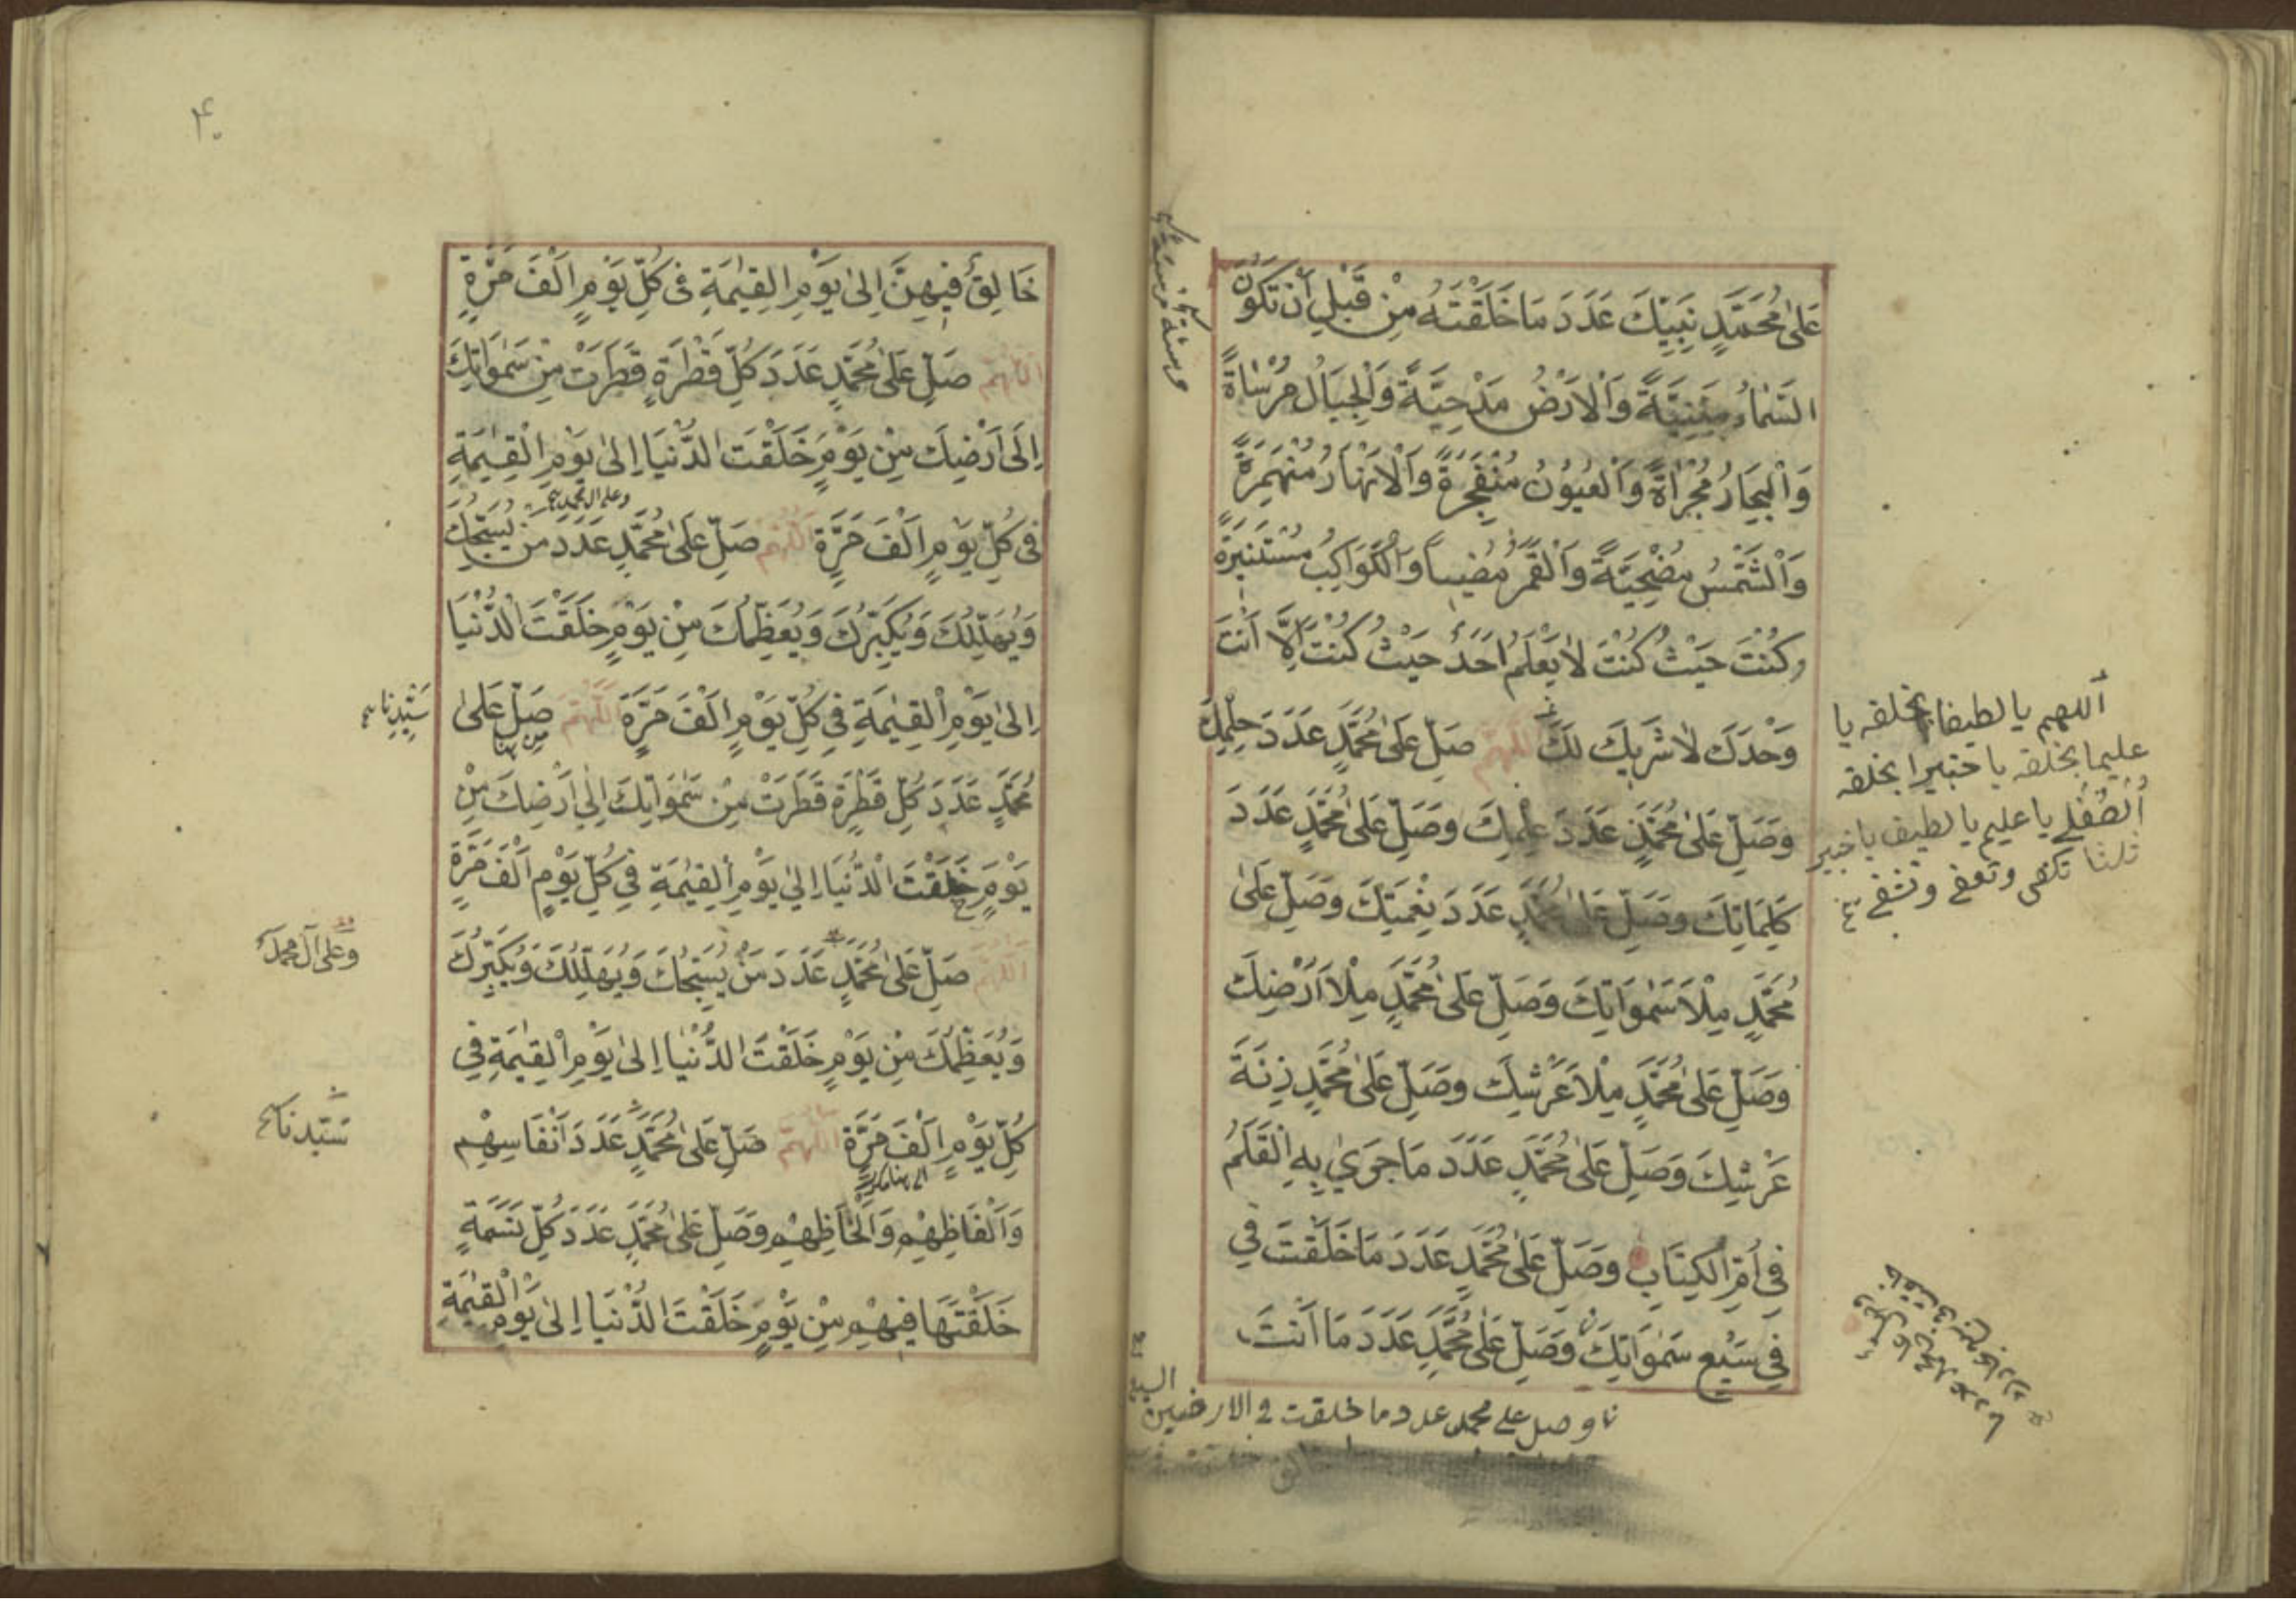 عَلٰى مُحَمَّدٍ نَبِيِّكَ عَدَدَ مَا خَلَقْتَهُ مِنْ قَبْلِ أَنْ تَكُونَ
السَّمَاءُ مَبْنِيَّةً وَالْاَرْضُ مَدْحِيَّةً وَالْجِبَالُ مُرْسَاةً
وَالْبِحَارُ مُجْرَاةً وَالْعُيُوْنُ مُنْفَجِرَةً وَالْاَنْهَارُ مُنْهَمِرَةً
وَالْشَّمْسُ مُضْحِيَةً وَالْقَمَرُ مُضِيئاً وَالْكَوَاكِبُ مُسْتَنِيْرَةً
وَكُنْتَ حَيْثُ كُنْتَ لَا يَعْلَمُ اَحَدٌ حَيْثُ كُنْتَ اِلَّا اَنْتَ
وَحْدَكَ لَا شَرِيْكَ لَكَ اَللّٰهُمَّ صَلِّ عَلٰى مُحَمَّدٍ عَدَدَ حِلْمِكَ
وَصَلِّ عَلٰى مُحَمَّدٍ عَدَدَ عِلْمِكَ وَصَلِّ عَلٰى مُحَمَّدٍ عَدَدَ
كَلِمَاتِكَ وَصَلِّ عَلٰى مُحَمَّدٍ عَدَدَ نِعْمَتِكَ وَصَلِّ عَلٰى
مُحَمَّدٍ مِلْاَ سَمٰوَاتِكَ وَصَلِّ عَلٰى مُحَمَّدٍ مِلْاَ اَرْضِكَ
وَصَلِّ عَلٰى مُحَمَّدٍ مِلْاَ عَرْشِكَ وَصَلِّ عَلٰى مُحَمَّدٍ زِنَةَ
عَرْشِكَ وَصَلِّ عَلٰى مُحَمَّدٍ عَدَدَ مَا جَرٰي بِهِ الْقَلَمُ
فِي اُمِّ الْكِتَابِ وَصَلِّ عَلٰى مُحَمَّدٍ عَدَدَ مَا خَلَقْتَ فِي
فِي سَبْعِ سَمٰوَاتِكَ وَصَلِّ عَلٰى مُحَمَّدٍ عَدَدَ مَا اَنْتَ
وصل على محمد عدد ما خلقت في الارضين السبع
اللهم يا لطيفا بخلقه يا
عليما بخلقه يا خبيرا بخلقه
اُلْطُفْ لي يا عليم يا لطيف يا خبير
ثلثا تكفى وتعفى وتشفى
۴۰
خَالِقٌ فِيهِنَّ اِلٰى يَوْمِ الْقِيٰمَةِ فِي كُلِّ يَوْمٍ اَلْفَ مَرَّةٍ
اَللّٰهُمَّ صَلِّ عَلٰى مُحَمَّدٍ عَدَدَ كُلِّ قَطْرَةٍ قَطَرَتْ مِنْ سَمٰوَاتِكَ
اِلَى اَرْضِكَ مِنْ يَوْمٍ خَلَقْتَ الدُّنْيَا اِلٰى يَوْمِ الْقِيٰمَةِ
وعلى ال محمد
فِي كُلِّ يَوْمٍ اَلْفَ مَرَّةٍ اَللّٰهُمَّ صَلِّ عَلٰى مُحَمَّدٍ عَدَدَ مَنْ يُسَبِّحُكَ
وَيُهَلِّلُكَ وَيُكَبِّرُكَ وَيُعَظِّمُكَ مِنْ يَوْمٍ خَلَقْتَ الْدُّنْيَا
اِلٰى يَوْمِ الْقِيٰمَةِ فِي كُلِّ يَوْمٍ اَلْفَ مَرَّةٍ اَللّٰهُمَّ صَلِّ عَلٰى
سَيِّدِنَا
من هنا
مُحَمَّدٍ عَدَدَ كُلِّ قَطْرَةٍ قَطَرَتْ مِنْ سَمٰوَاتِكَ اِلٰي اَرْضِكَ مِنْ
يَوْمٍ خَلَقْتَ الْدُّنْيَا اِلٰي يَوْمِ الْقِيٰمَةِ فِي كُلِّ يَوْمٍ اَلْفَ مَرَّةٍ
اَللّٰهُمَّ صَلِّ عَلٰى مُحَمَّدٍ عَدَدَ مَنْ يُسَبِّحُكَ وَيُهَلِّلُكَ وَيُكَبِّرُكَ
وعلى آل محمد
وَيُعَظِّمُكَ مِنْ يَوْمٍ خَلَقْتَ الدُّنْيَا اِلٰى يَوْمِ الْقِيٰمَةِ فِي
كُلِّ يَوْمٍ اَلْفَ مَرَّةٍ اَللّٰهُمَّ صَلِّ عَلٰى مُحَمَّدٍ عَدَدَ اَنْفَاسِهِمْ
سيدنا
الى هنا مكرر
وَاَلْفَاظِهِمْ وَاَلْحَاظِهِمْ وَصَلِّ عَلٰى مُحَمَّدٍ عَدَدَ كُلِّ نَسَمَةٍ
خَلَقْتَهَا فِيْهِمْ مِنْ يَوْمٍ خَلَقْتَ الدُّنْيَا اِلٰى يَوْمِ الْقِيٰمَةِ